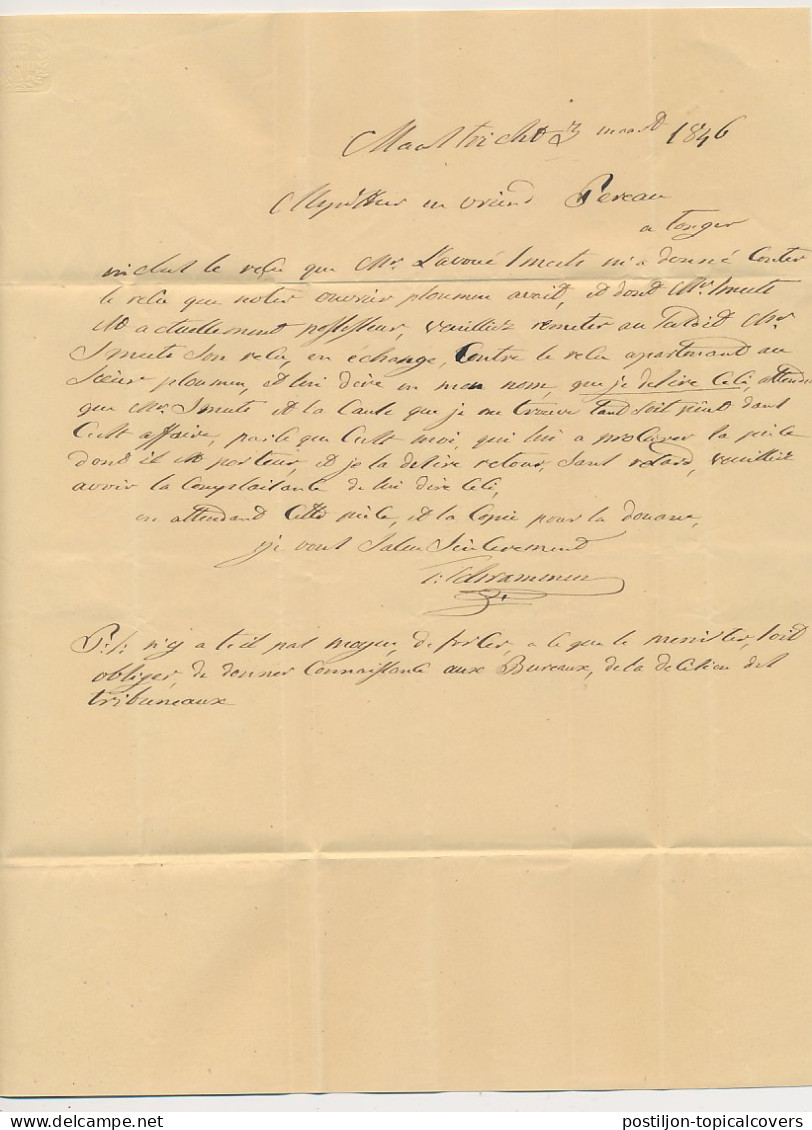 Maastricht 3 maart 1846
Mynheer en vriend Pereau
a Tonger
inclus le reçu que Mr. L'avoué Smets m'a donné Conter
le reçu que noter ouvrir ploumen avait, et dont Mr. Smets
est actuellement possesseur, veuilliez remeter au Tatdit Mr.
Smets Son reçu, en échange, Contre le reçu apartenant au
Sieur ploumen, et lui dire en mon nom, que je desire Celà, attendu
que Mr. Smets est la Cause que je me trouve Tant soit peut dans
Cest affaire, parce que C'est moi, qui lui a procurer la pièce
dont il est porteur, et je la desire retour, Sans retard, veuilliez
avoir la Complaisance de lui dire Celà,
en attendant Cette pièce, et la Copie pour la douane,
je vous Salue Sincerement
Schrammen
P:S: n'y a t'il pas moyen, de forcer, a ce que le menister, soit
obliger, de donner Connaissance aux Bureaux, de la decision des
tribuneaux
postiljon-topicalcovers